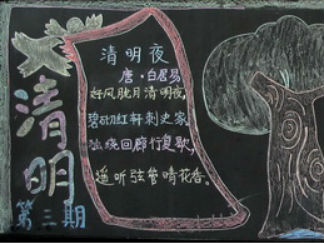 清明
第三期
清明夜
唐·白居易
好风胧月清明夜,
碧砌红轩刺史家,
独绕回廊行复歇,
遥听弦管暗花香。